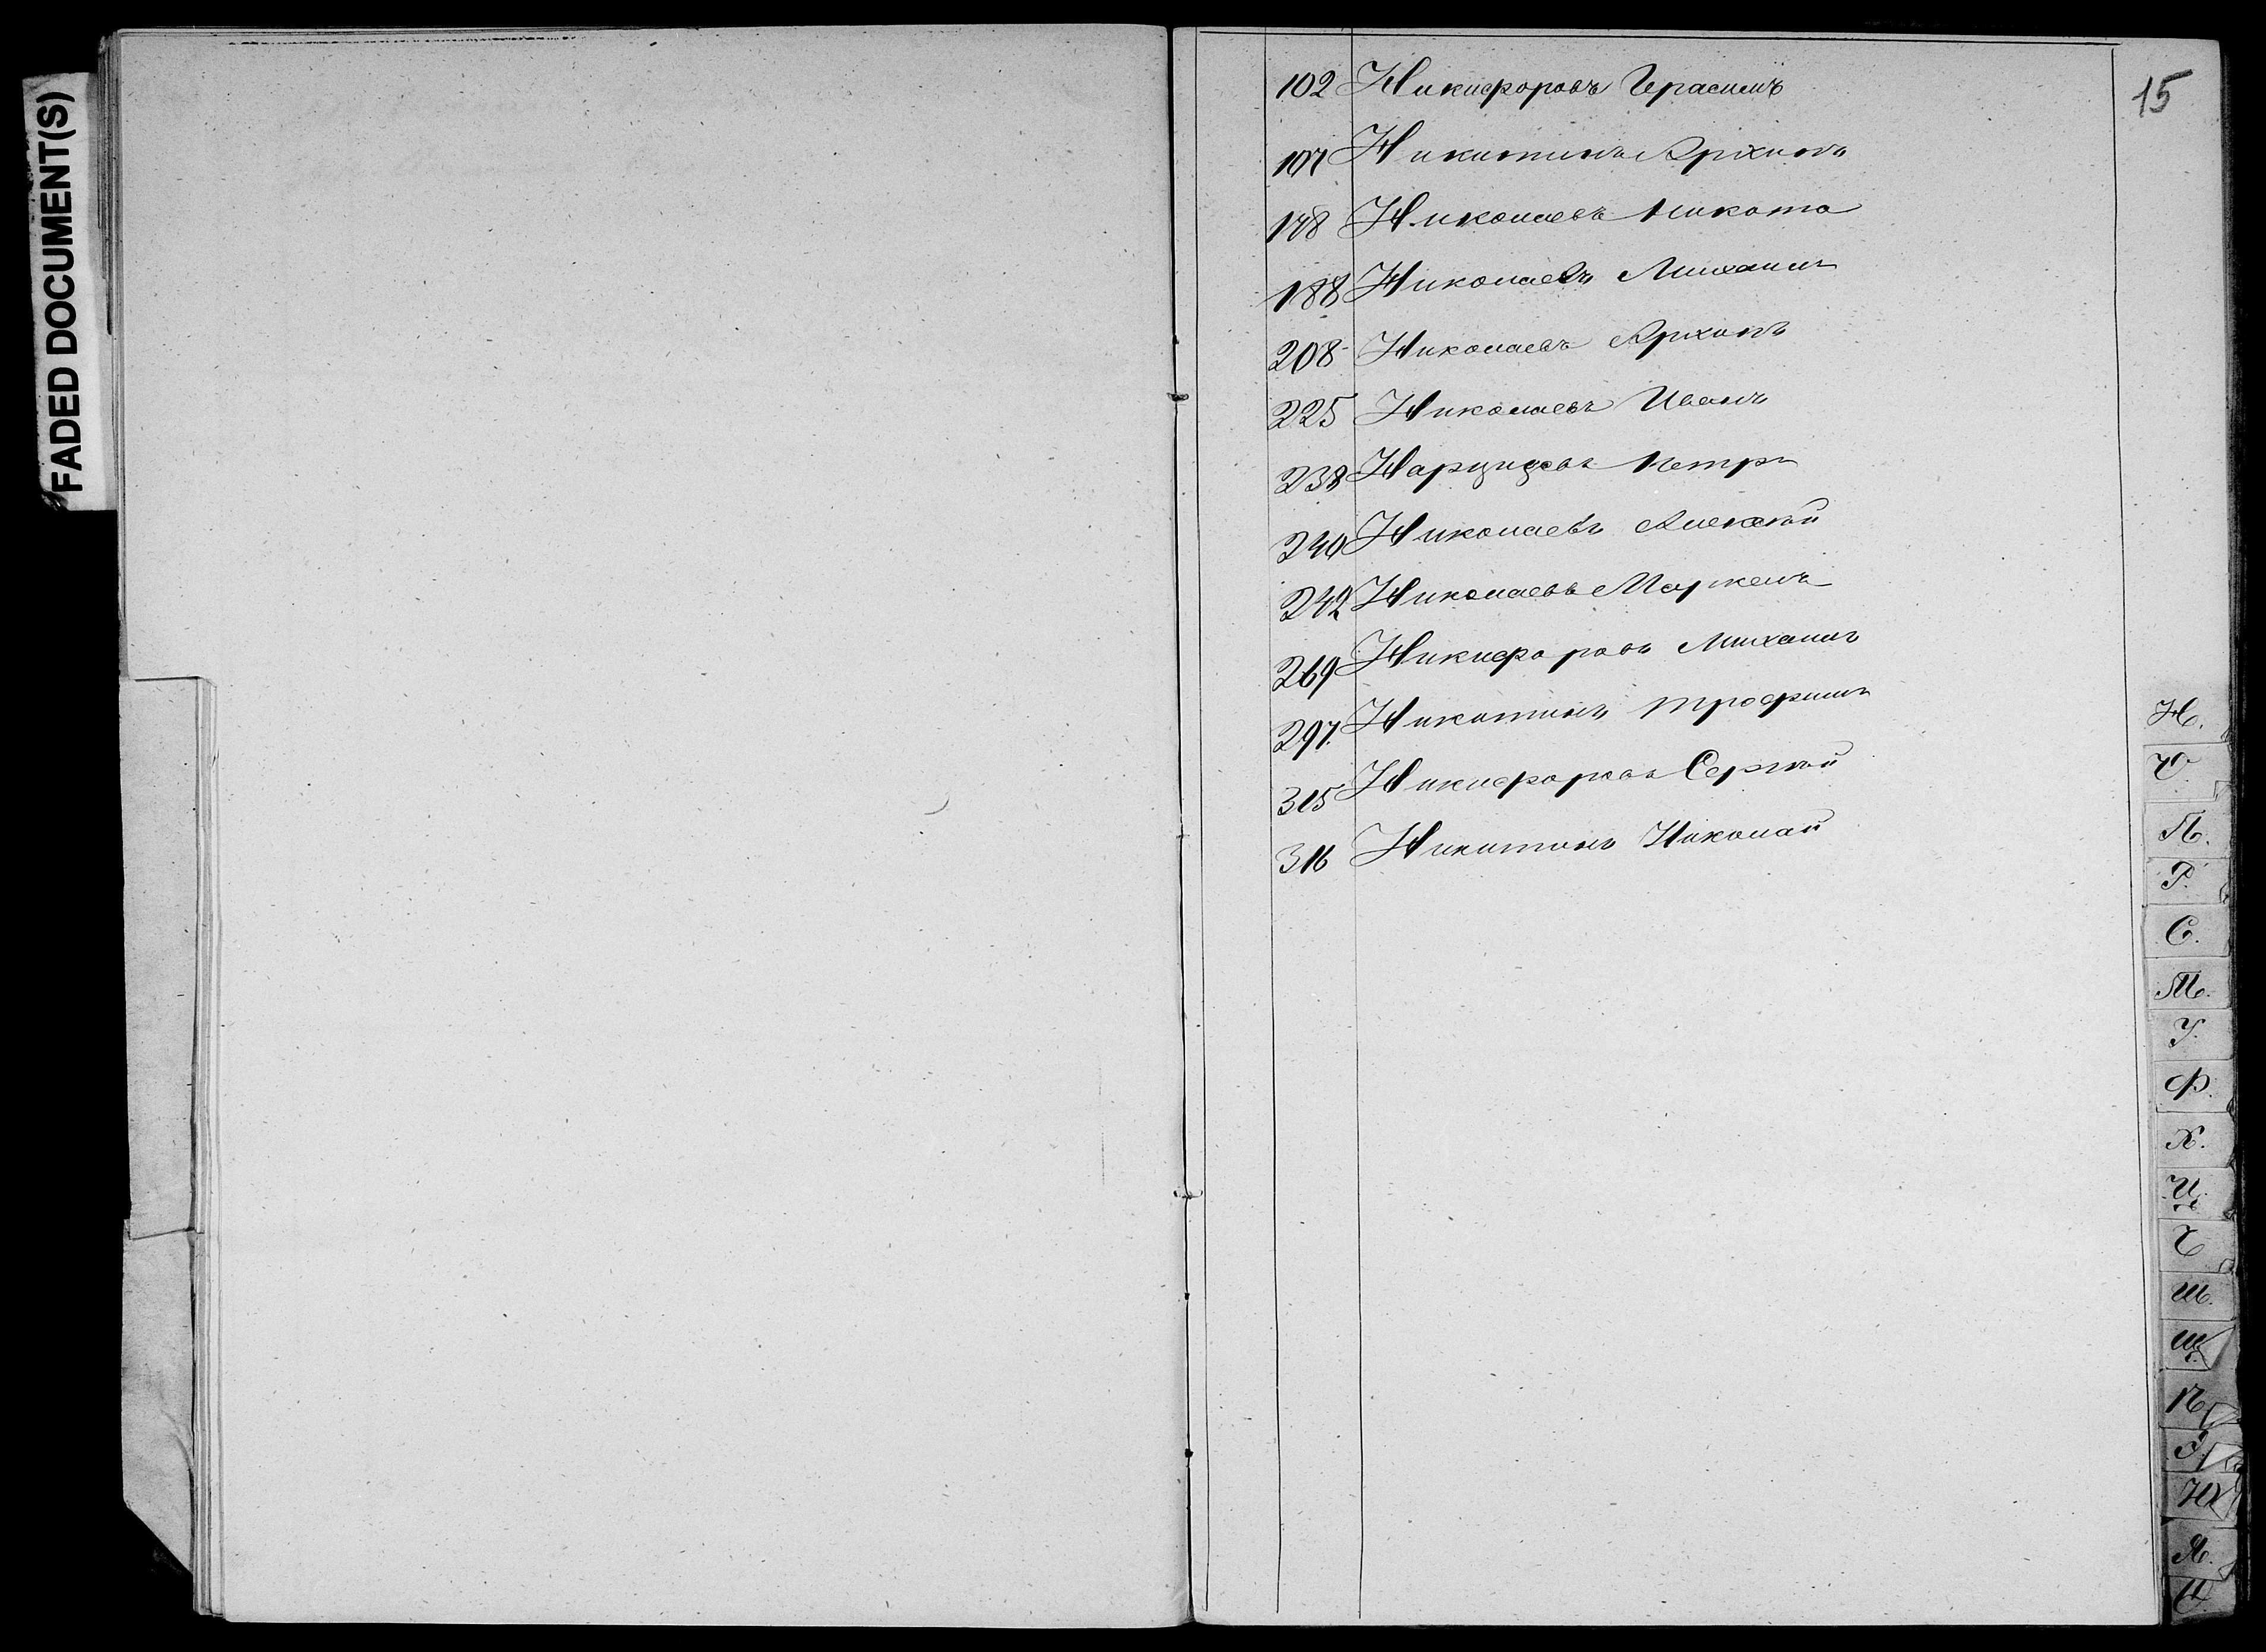 FADED DOCUMENT(S)
15
102 Никифоровъ Герасимъ
107 Никитинъ Архипъ
178 Николаевъ Никита
188 Николаевъ Михаилъ
208 Николаевъ Архипъ
225 Николаевъ Иванъ
238 Нарцизовъ Петръ
240 Николаевъ Алексѣй
242 Николаевъ Маркелъ
269 Никифоровъ Михаилъ
297. Никитинъ Трофимъ
315 Никифоровъ Сергѣй
316 Никитинъ Николай
Н.
О.
П.
Р.
С.
Т.
У.
Ф.
Х.
Ц.
Ч
Ш.
Щ.
Ѣ
Э.
Ю
Я.